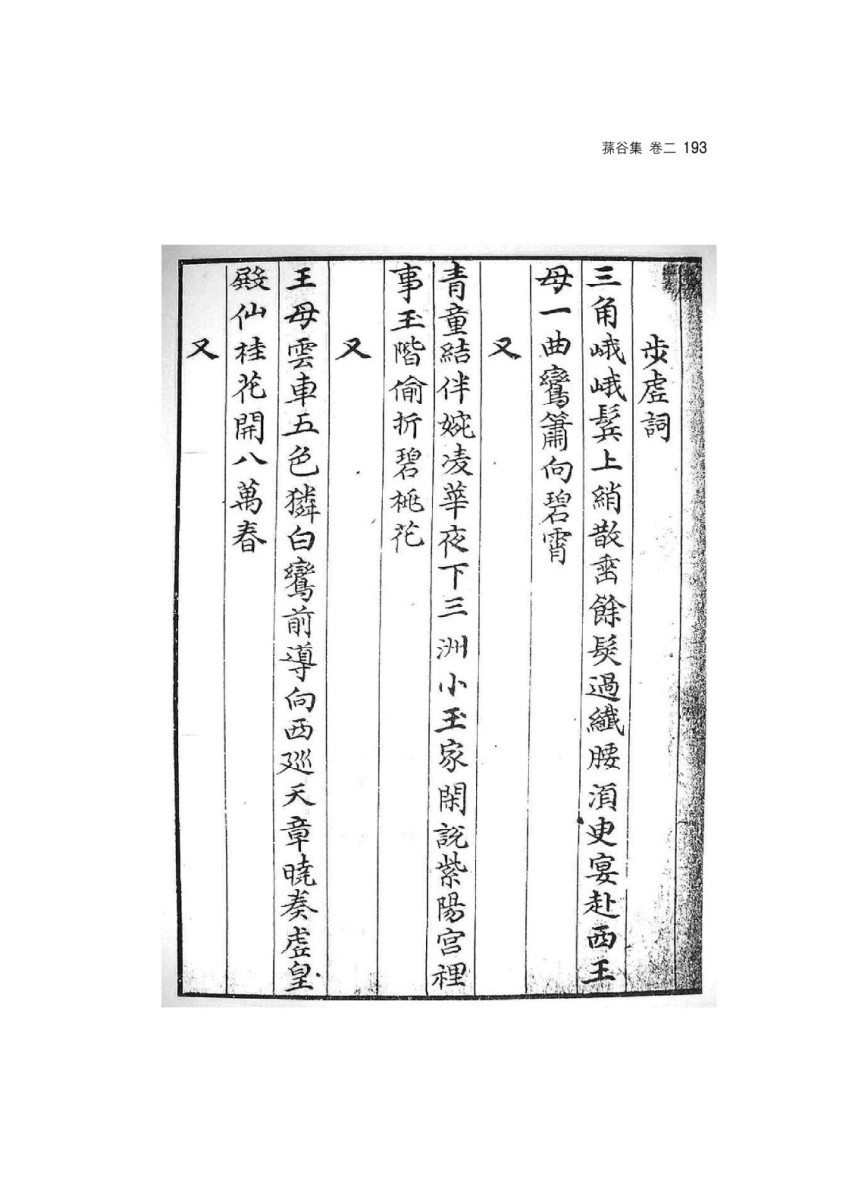 蓀谷集 卷二 193
步虛詞
三角峨峨鬂上綃散垂餘髮過纖腰湏臾宴赴西王
母一曲鸞簫向碧霄
又
青童結伴婉凌華夜下三洲小玉家閑說紫陽宮裡
事玉階偷折碧桃花
又
王母雲車五色獜白鸞前導向西廵天章曉奏虛皇
殿仙桂花開八萬春
又